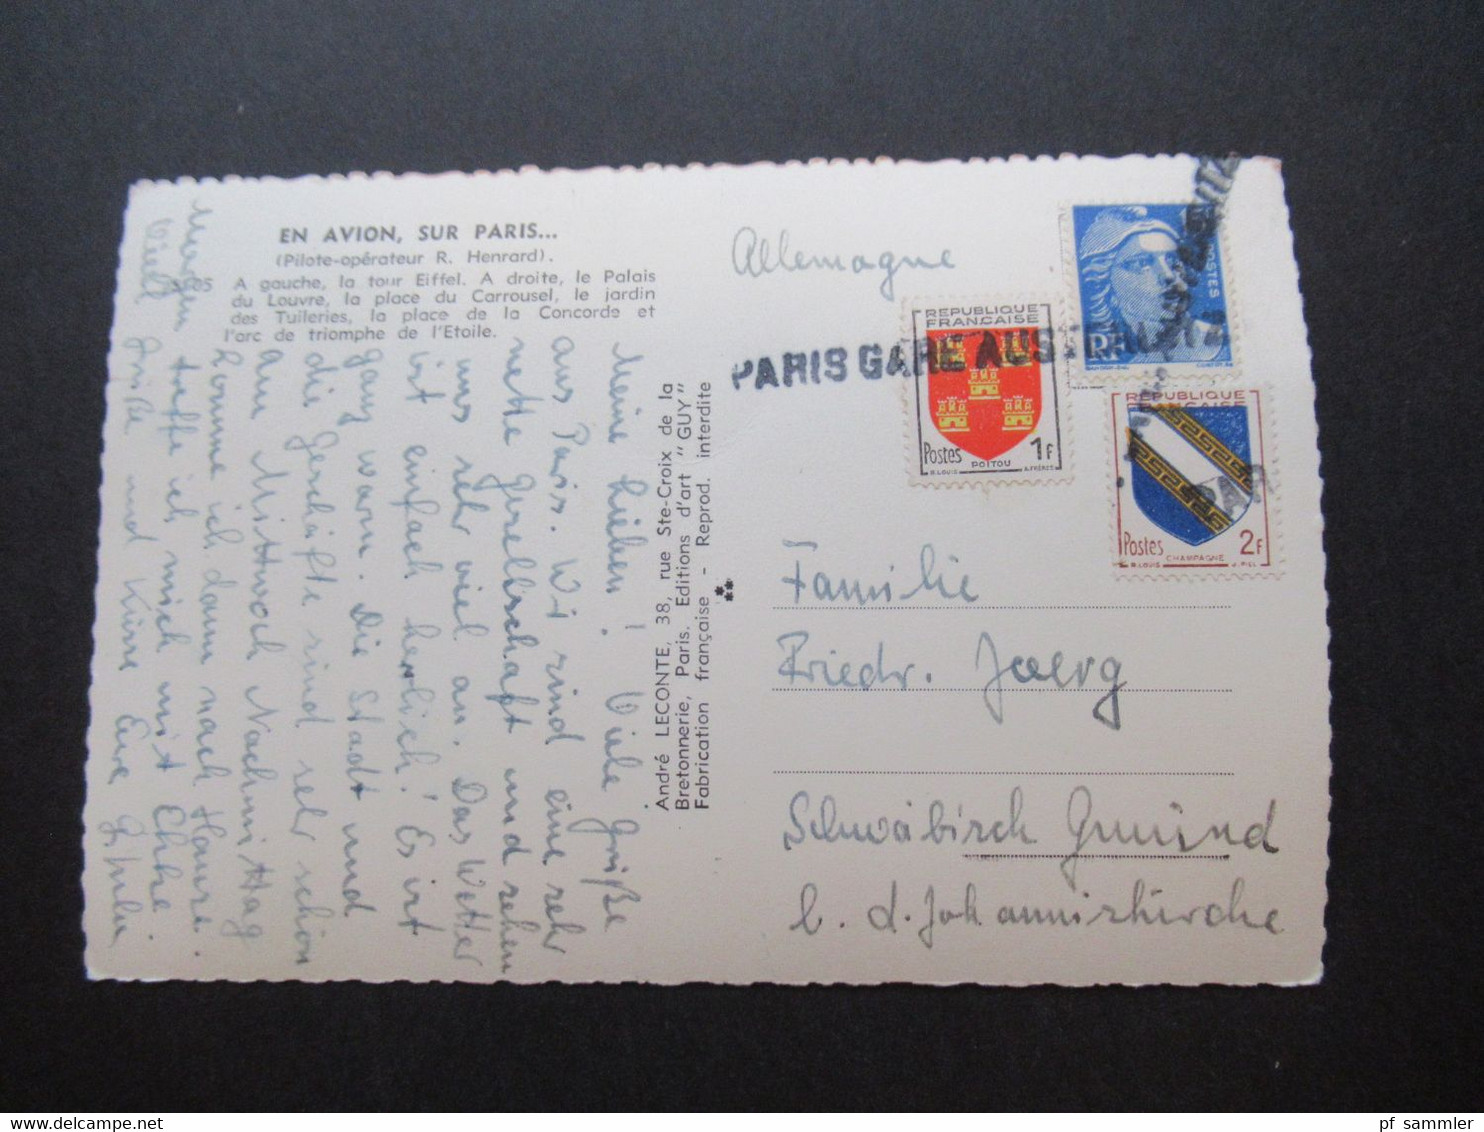 EN AVION, SUR PARIS...
(Pilote-opérateur R. Henrard).
A gauche, la tour Eiffel. A droite, le Palais
du Louvre, la place du Carrousel, le jardin
des Tuileries, la place de la Concorde et
l'arc de triomphe de l'Etoile.
Meine Lieben! Viele Grüße
aus Paris. Wir sind eine sehr
nette Gesellschaft und sehen
uns sehr viel an. Das Wetter
ist einfach herrlich! Es ist
ganz warm. Die Stadt und
die Geschäfte sind sehr schön
Am Mittwoch Nachmittag
komme ich dann nach Hause.
Morgen treffe ich mich mit
Viele Grüße und Küsse Eure
André LECONTE, 38, rue Ste-Croix de la
Bretonnerie, Paris. Editions d'art "GUY"
Fabrication française - Reprod. interdite
Allemagne
PARIS GARE AUSTERLITZ
REPUBLIQUE
FRANÇAISE
Postes 1F
POITOU
POSTES
RF
REPUBLIQUE
FRANÇAISE
Postes 2F
CHAMPAGNE
Familie
Friedr. Joerg
Schwäbisch Gmünd
b. d. Johanniskirche
pf_sammler